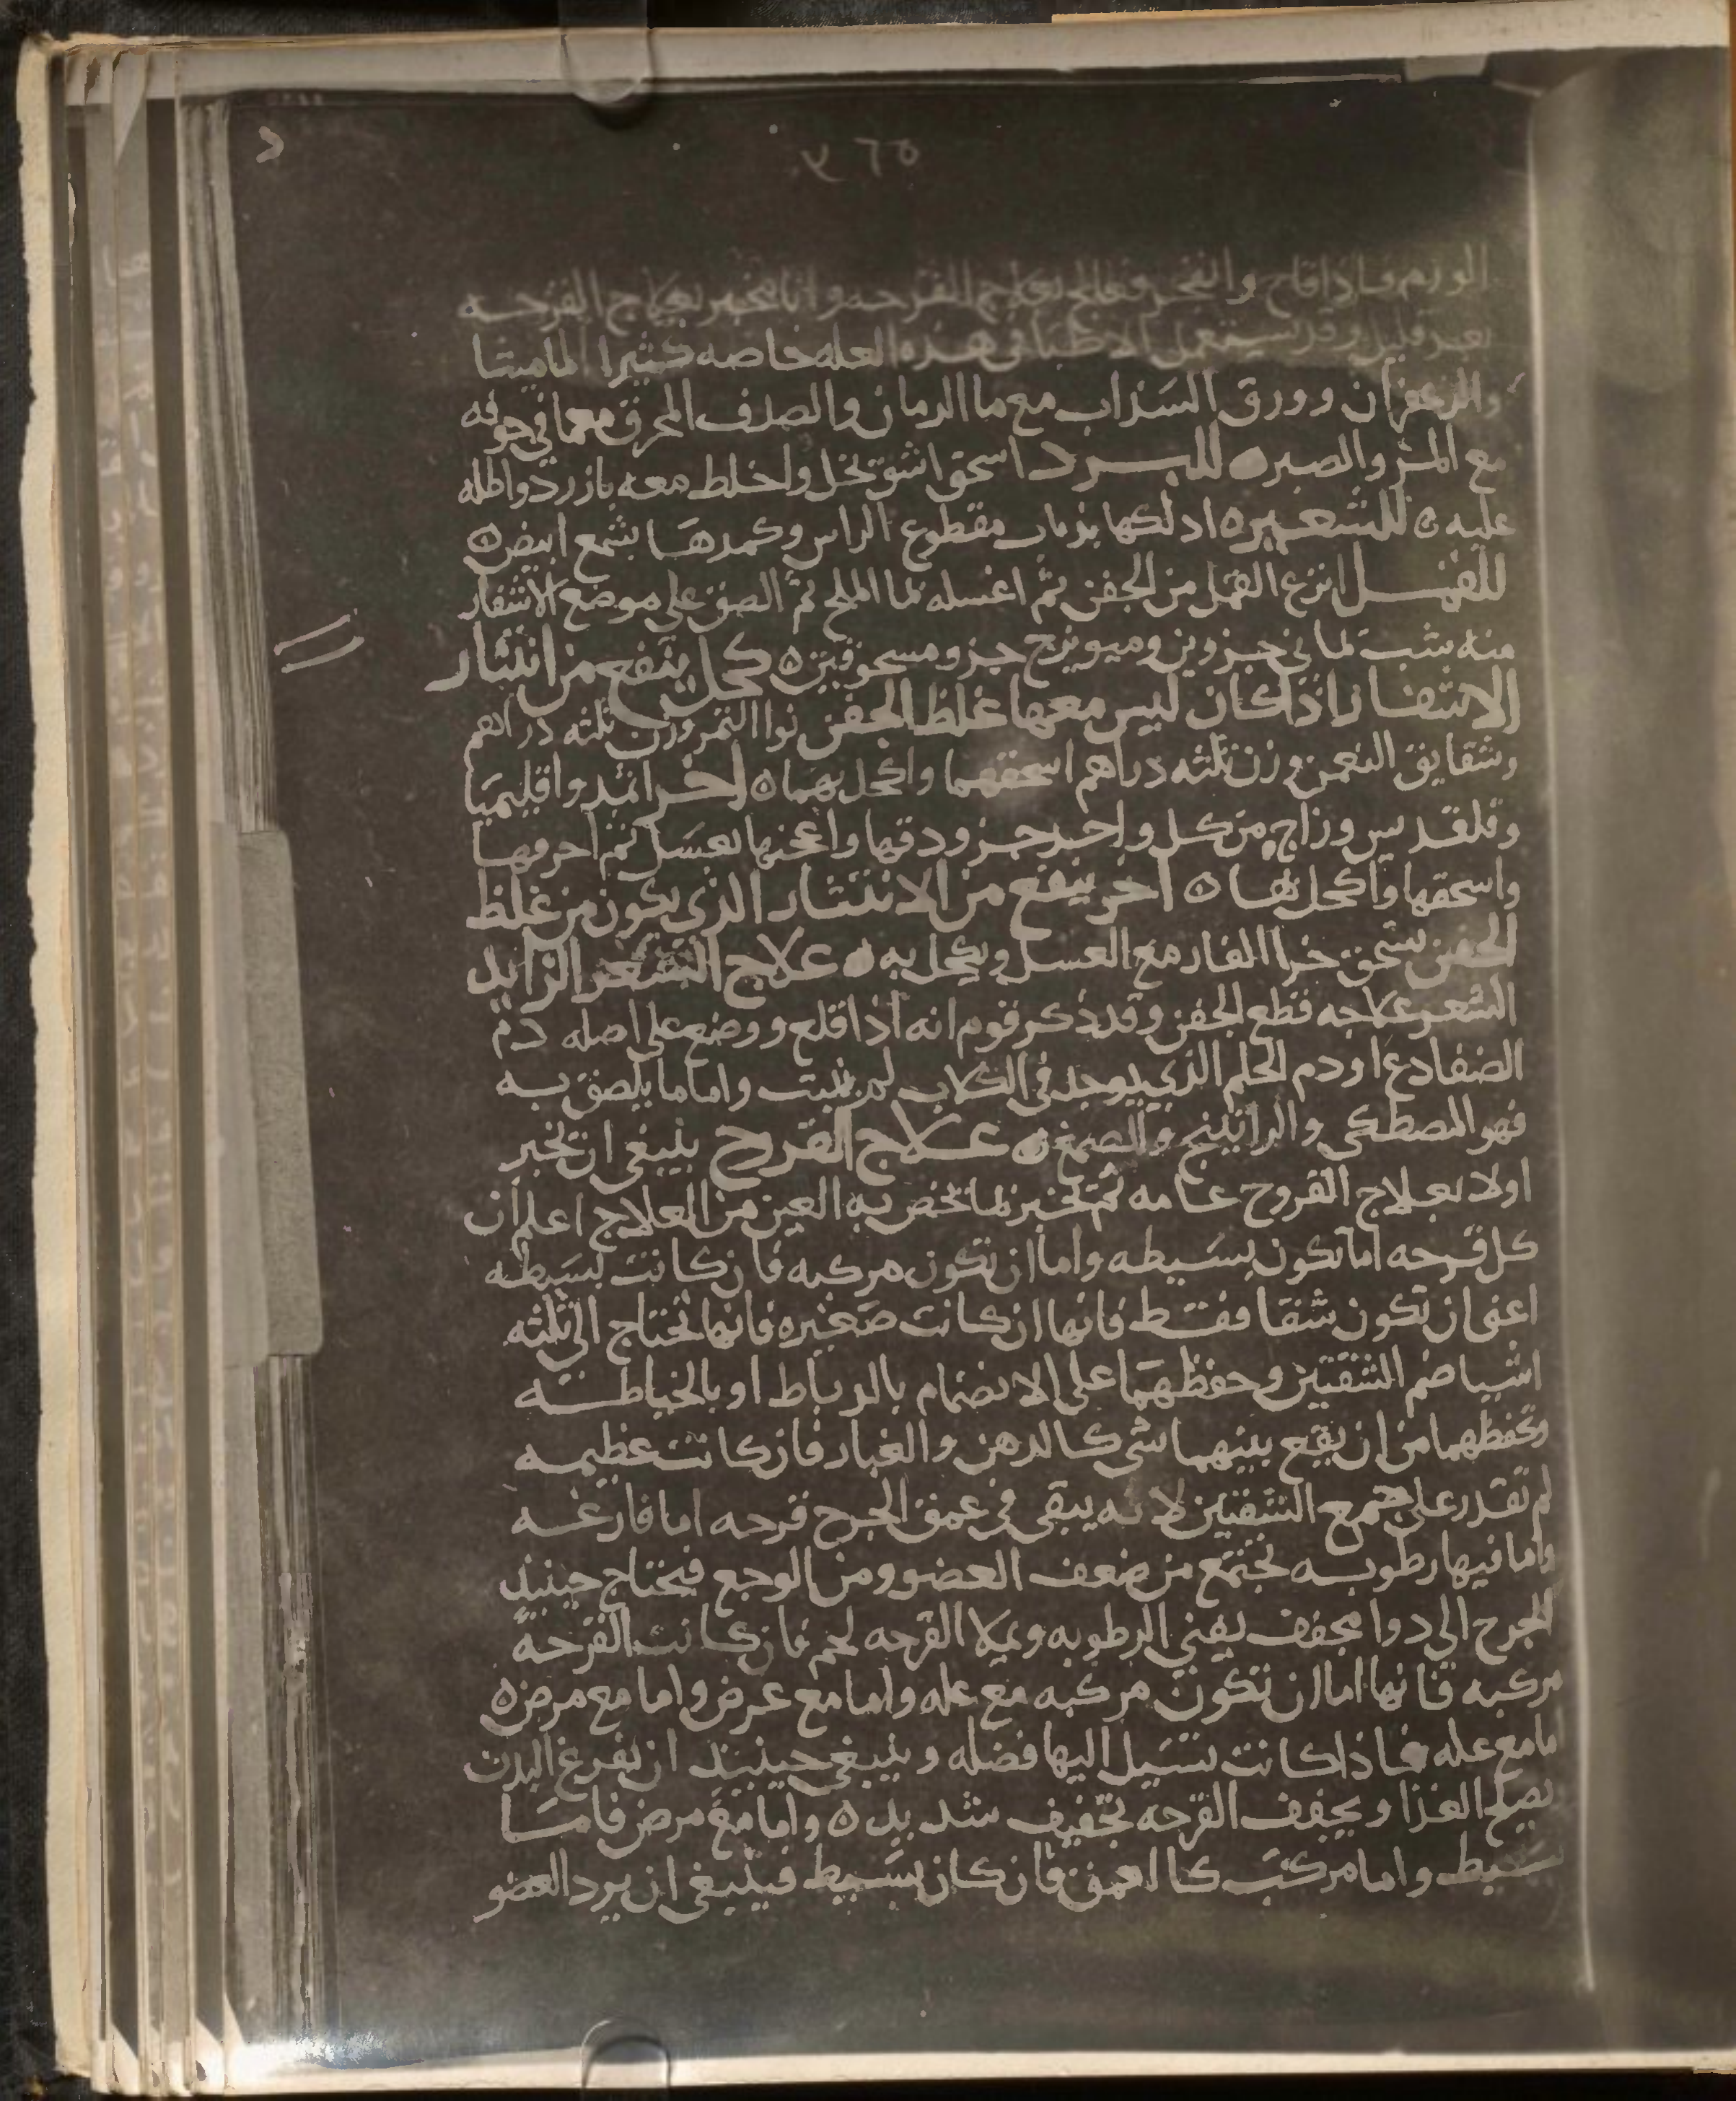 ٥٦٧
الورم فاذا قاح وانفجر فعالج بعلاج القرحه وانا مخبر بعلاج القرحه
بعد قليل وقد يستعمل الاطبا في هذه العله خاصه كثيرا الماميثا
والزعفران وورق السذاب مع ما الرمان والصدف المحرق معما في جوفه
مع المر والصبر ٥ للبرد اسحق اشق بخل واخلط معه بازرد واطله
عليه ٥ للشعيره ادلكها بذباب مقطوع الراس وكمدها بشمع ابيض ٥
للقمل انزع القمل من الجفن ثم اغسله بما الملح ثم الصق على موضع الاشفار
منه بشب يماني جزوين وميويزج جزو مسحوقين ٥ كحل ينفع من انتثار
الاشفار اذا كان ليس معها غلظ الجفن نوا التمر وزن ثلثه دراهم
وشقايق النعمن وزن ثلثه دراهم اسحقهما واكحل بهما ٥ اخر اثمد واقليميا
وقلقديس وزاج من كل واحد جزو دقها واعجنها بعسل ثم احرقها
واسحقها واكحل بها ٥ اخر ينفع من الانتثار الذي يكون من غلظ
الجفن يسحق خرا الفار مع العسل ويكحل به ٥ علاج الشعر الزايد
الشعر علاجه قطع الجفن وقد ذكر قوم انه اذا قلع ووضع على اصله دم
الضفادع او دم الحلم الذي يوجد في الكلاب لم ينبت واما ما يلصق به
فهو المصطكي والراتينج والصمغ ٥ علاج القرح ينبغي ان نخبر
اولا بعلاج القروح عامه ثم نخبر بما يخص به العين من العلاج اعلم ان
كل قرحه اما تكون بسيطه واما ان تكون مركبه فان كانت بسيطه
اعني ان تكون شقا فقط فانها ان كانت صغيره فانها تحتاج الى ثلثه
اشيا ضم الشفتين وحفظهما على الانضمام بالرباط او بالخياطه
وتحفظهما من ان يقع بينهما شي كالدهن والغبار فان كانت عظيمه
لم تقدر على جمع الشفتين لانه يبقى في عمق الجرح قرحه اما فارغه
واما فيها رطوبه تجتمع من ضعف العضو ومن الوجع فيحتاج حينيذ
الجرح الى دوا مجفف يفني الرطوبه ويملا القرحه لحم فان كانت القرحه
مركبه فانها اما ان تكون مركبه مع عله واما مع عرض واما مع مرض ٥
اما مع عله فاذا كانت تسيل اليها فضله وينبغي حينيذ ان نفرغ البدن
نصلح الغذا ويجفف القرحه تجفيف شديد ٥ واما مع مرض فاما
بسيط واما مركب كالعمق فان كان بسيط فينبغي ان يرد العضو